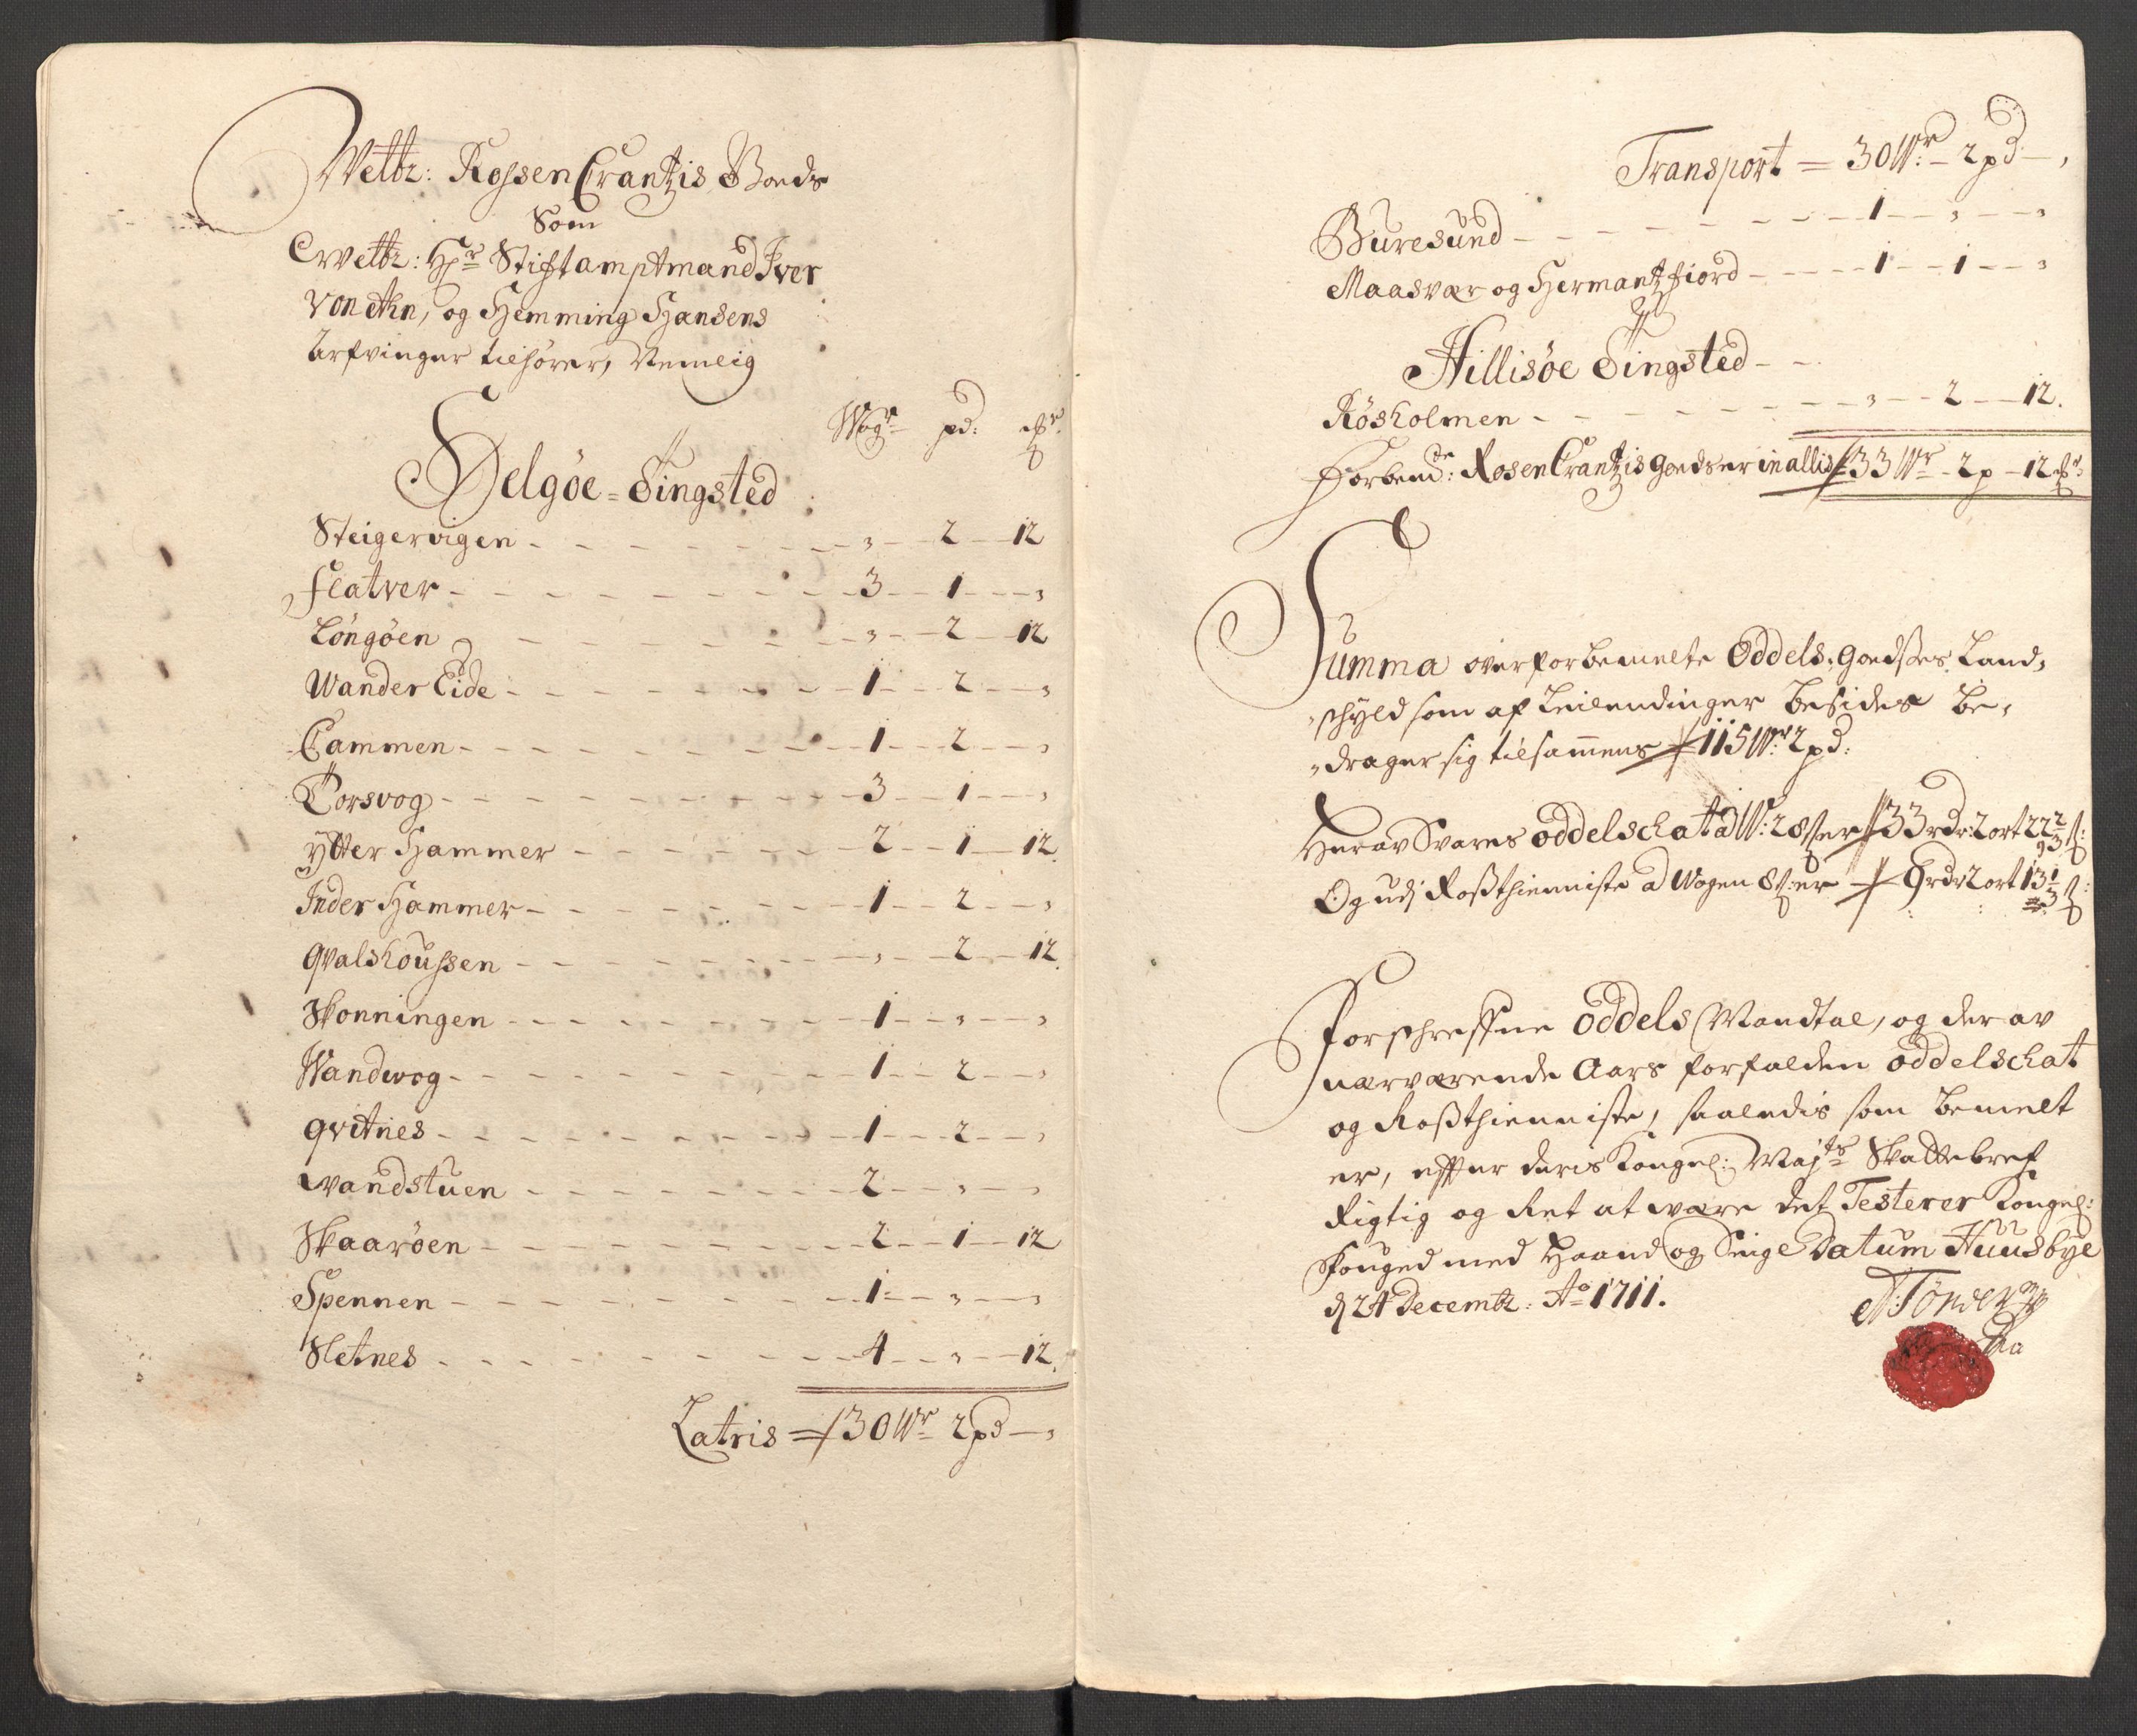 Welbr: Rossen Crantzis Goeds
Som
Erwelbr: Hr Stiftamptmand Iver
von Ahn, og Hemming Hansens
Arfvinger tilhører, Nemlig
Wogr pd:
Helgøe=Tingsted
Steigervigen - - - , - 2 - 12
Flatver - - - 3 - 1 - ,
Løngøen - - - , - 2 - 12
Wander Eide - - - 1 - 2 - ,
Cammen - - - 1 - 2 - ,
Torsvog - - - 3 - 1 - ,
ÿtter Hammer - - - 2 - 1 - 12
Inder Hammer - - - 1 - 2 - ,
Qvalshoussen - - - , - 2 - 12
Skonningen - - - 1 - , - ,
Wandwog - - - 1 - 2 - ,
Qvitnes - - - 1 - 2 - ,
Wandstuen - - - 2 - , - ,
Skaarøen - - - 2 - 1 - 12
Spennen - - - 1 - , - ,
Sletnes - - - 4 - , - 12
Latris = 30 Wr 2 pd - ,
Transport = 30 Wr: - 2 pd - ,
Buresund - - - 1 - , - ,
Maasvær og Hermantzfiord - - - 1 - 1 - ,
Hillisøe Tingsted - -
Røsholmen - - - , - 2 - 12.
Forbemde: Rosen Crantzis goeds er in allis 33 Wr - 2 p - 12
Summa over forbemelte Oddels goedses Land,
schyld som af Leilendinger besides be,
drager sig tilsammens 115 Wr: 2 pd:
Herav Svares oddelschat ad W: 28 s er 33 rdr: 2 ort 22 2/3 s:
Og udj Rossthienniste a Wogen 8 s: er 9 rdr 2 ort 13 1/3 s:
Forschrefne oddels Mandtal, og der av
nærværende Aars forfalden oddelschat
og Rossthienniste, saaledis som bemelt
er, effter deris Kongel: Majts Skattebref
Rigtig og Ret at være det Testerer Kongel:
Fouged med Haand og Seigl Datum Huusbye
d 24 Decembr: Ao 1711.
A: Tønder